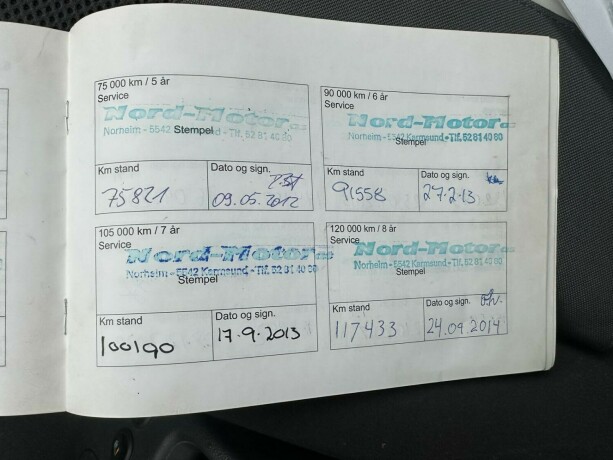 75 000 km / 5 år
Service
Nord-Motor
Norheim - 5542 Stempel - Tlf. 52 81 40 60
Km stand
Dato og sign.
75821
09.05.2012
90 000 km / 6 år
Service
Nord-Motor
Norheim - 5542 Karmsund - Tlf. 52 81 40 60
Stempel
Km stand
Dato og sign.
91558
27.2.13
105 000 km / 7 år
Service
Nord-Motor
Norheim - 5542 Karmsund - Tlf. 52 81 40 60
Stempel
Km stand
Dato og sign.
100190
17.9.2013
120 000 km / 8 år
Service
Nord-Motor
Norheim - 5542 Karmsund - Tlf. 52 81 40 60
Stempel
Km stand
Dato og sign.
117433
24.09.2014